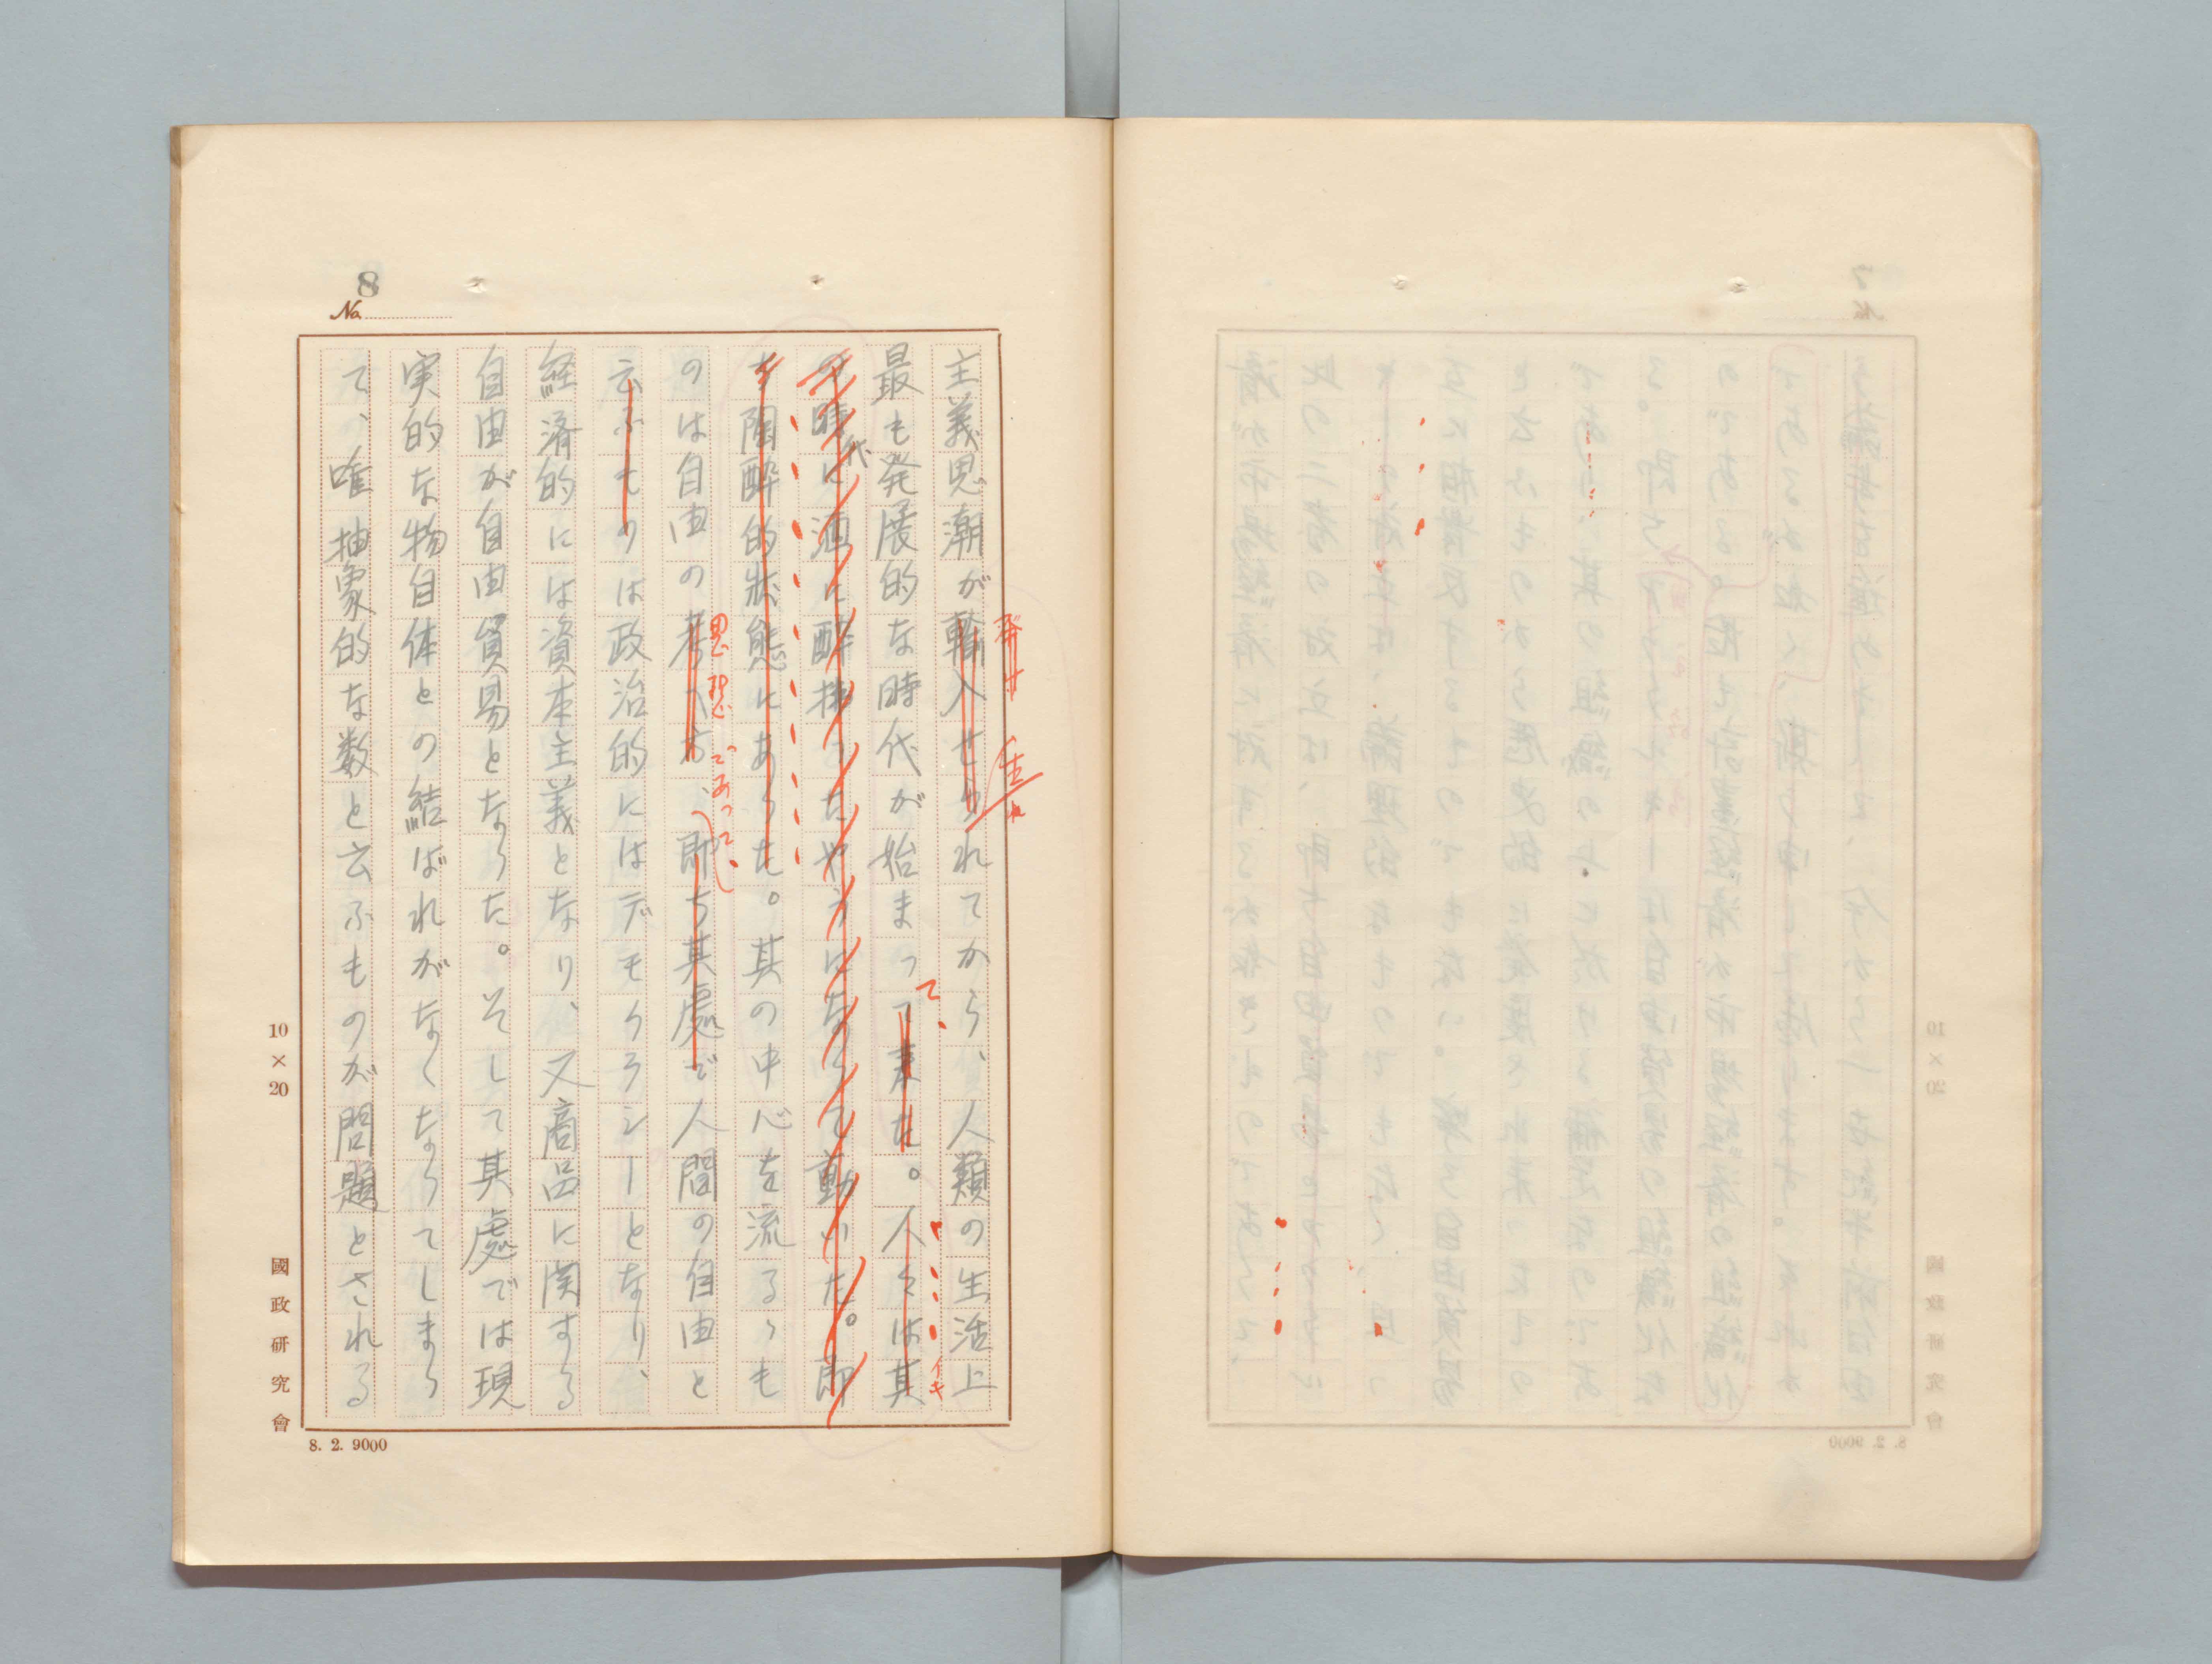 8
No
主義思潮が輸入せられてから、人類の生活上
発生
最も発展的な時代が始まって来た。人々は其
て、
イキ
の時代に酒に酔払ったやうになって動いた。即
を陶酔的状態にあった。其の中心を流るゝも
のは自由の考へ方、即ち其處で人間の自由と
思想であって、
云ふものは政治的にはデモクラシーとなり、
経済的には資本主義となり、又商品に関する
自由が自由貿易となった。そして其處では現
実的な物自体との結ばれがなくなってしまっ
て、唯抽象的な数と云ふものが問題とされる
10×20
國政研究會
8. 2. 9000